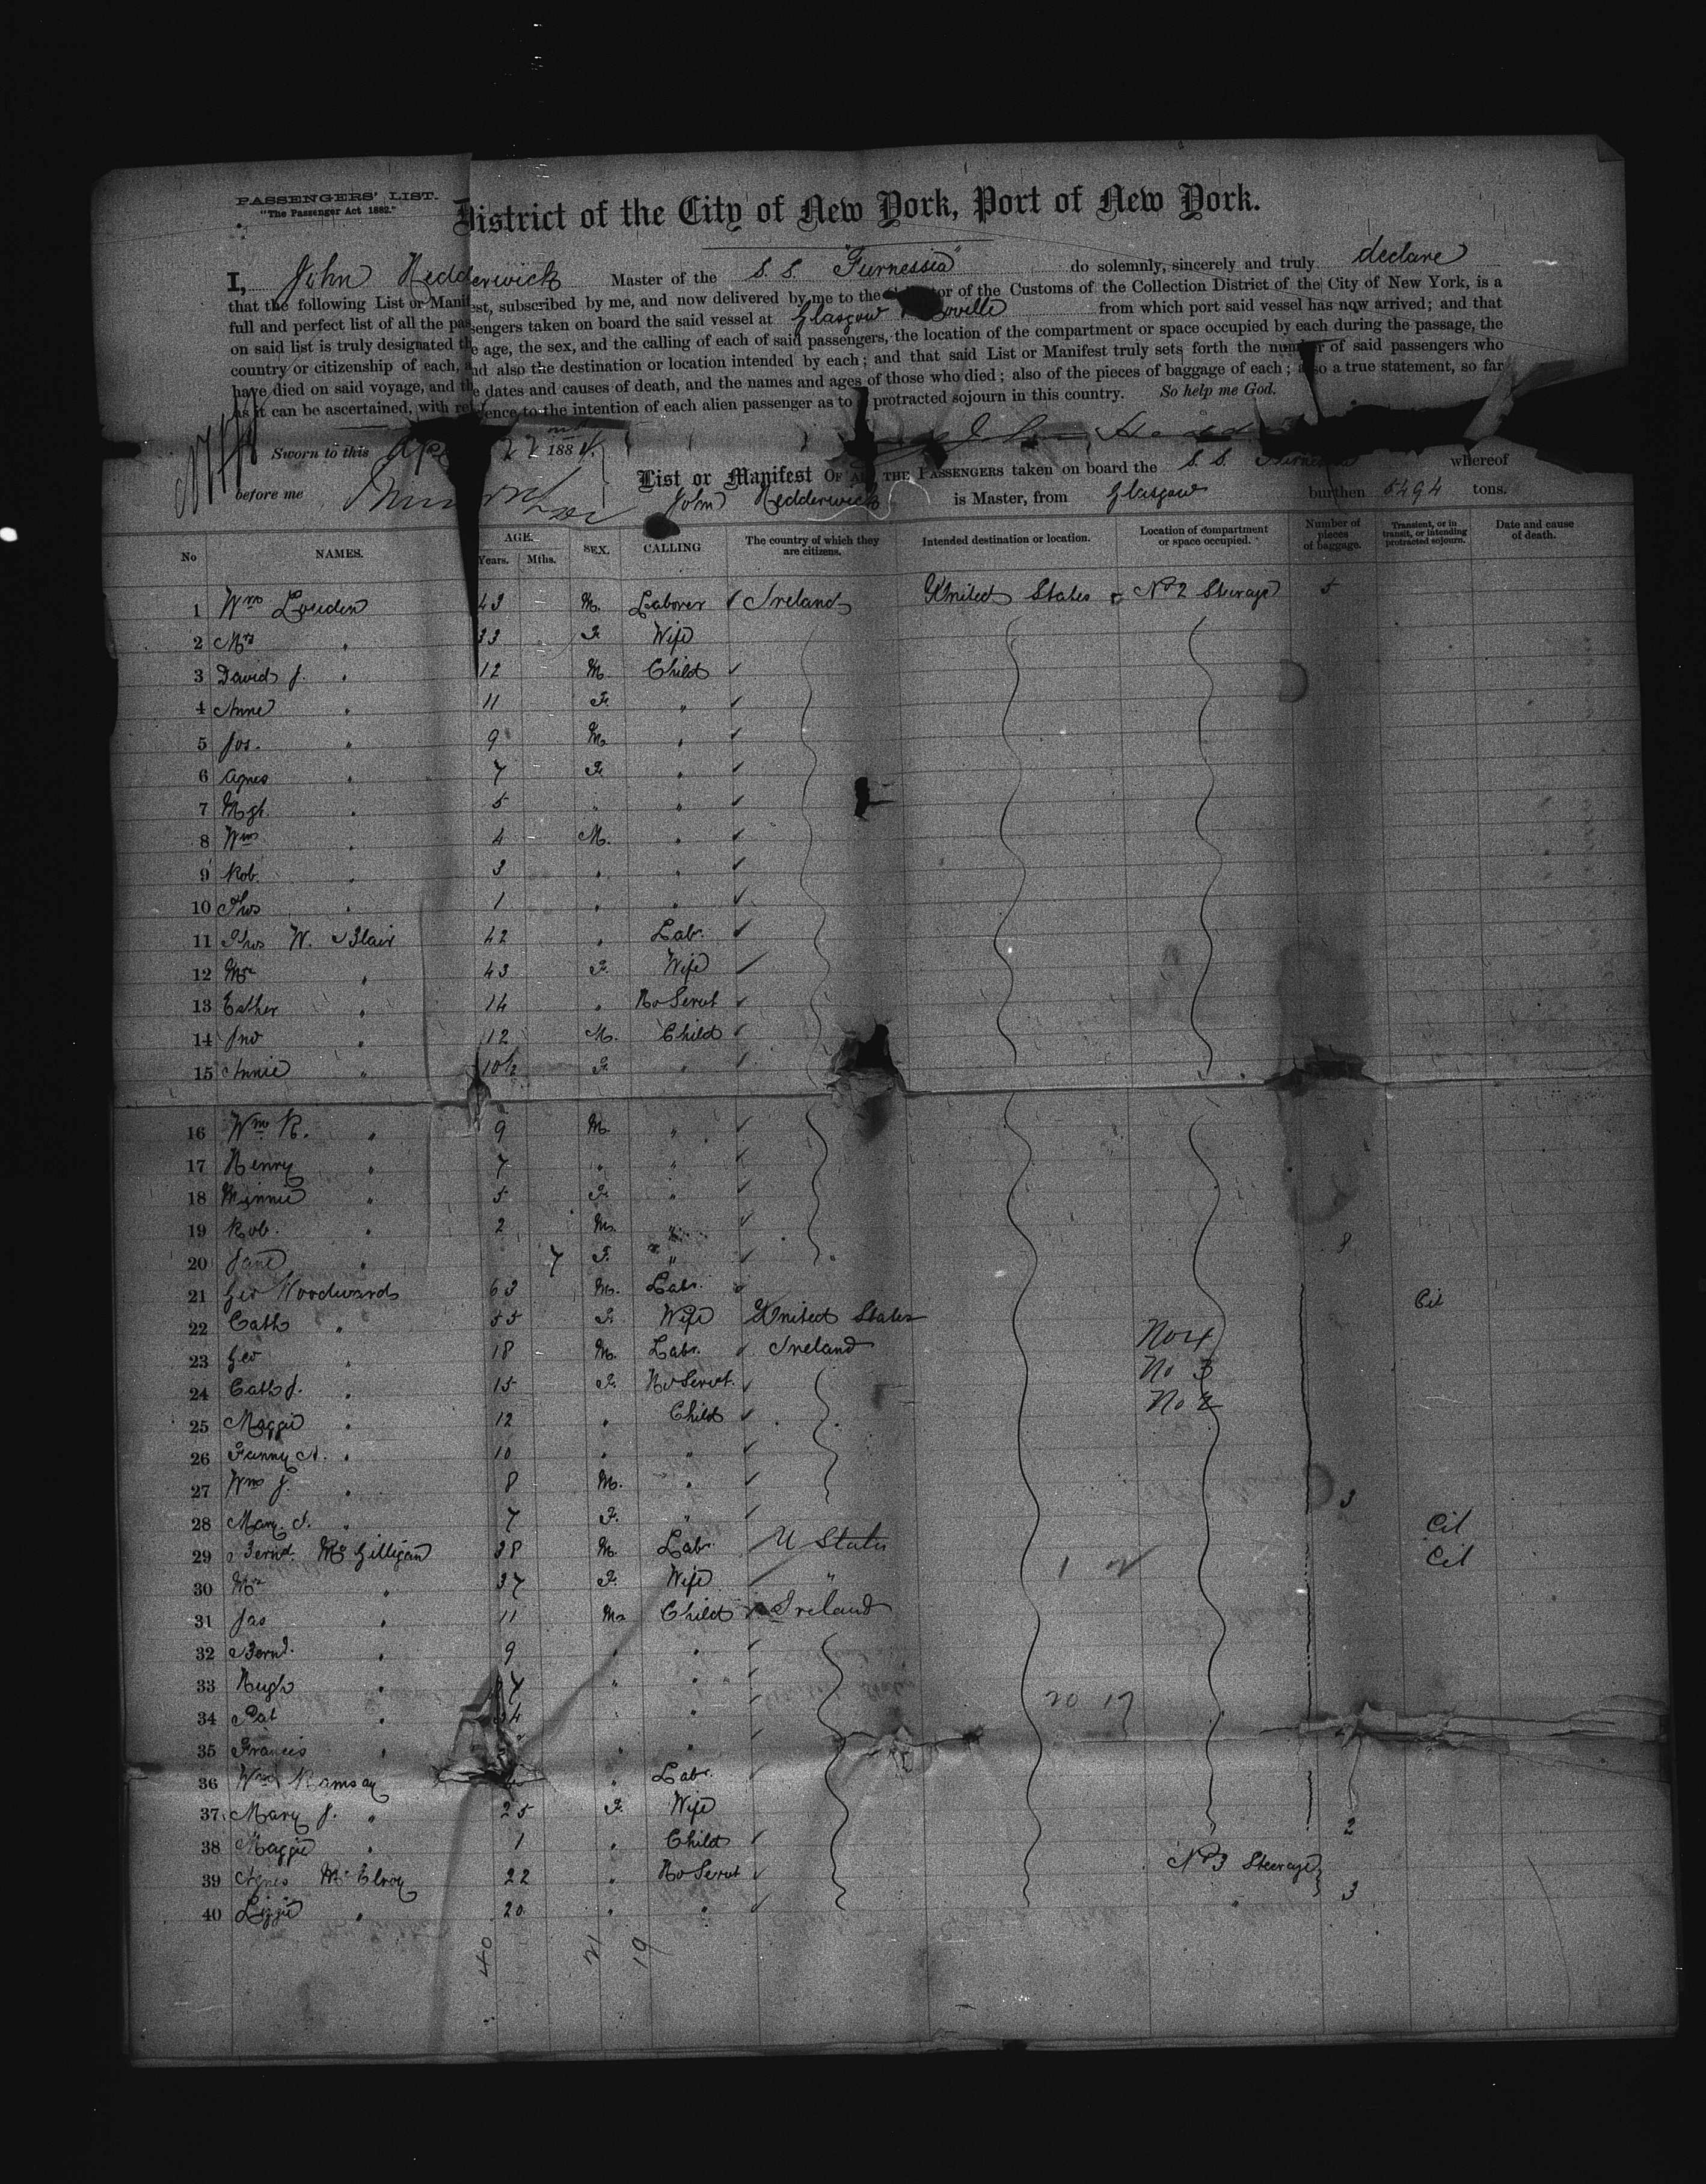 PASSENGERS' LIST.
"The Passenger Act 1882."
District of the City of New York, Port of New York.
I, John Hedderwick Master of the S. S. "Furnessia" do solemnly, sincerely and truly declare
that the following List or Manifest, subscribed by me, and now delivered by me to the of the Customs of the Collection District of the City of New York, is a
full and perfect list of all the passengers taken on board the said vessel at Glasgow from which port said vessel has now arrived; and that
on said list is truly designated the age, the sex, and the calling of each of said passengers, the location of the compartment or space occupied by each during the passage, the
country or citizenship of each, and also the destination or location intended by each; and that said List or Manifest truly sets forth the number of said passengers who
have died on said voyage, and the dates and causes of death, and the names and ages of those who died; also of the pieces of baggage of each; also a true statement, so far
as it can be ascertained, with reference to the intention of each alien passenger as to protracted sojourn in this country. So help me God.
Sworn to this 22nd 1884. John
before me
List or Manifest OF ALL THE PASSENGERS taken on board the S. S. Furnessia whereof
John Hedderwick is Master, from Glasgow burthen 5494 tons.
No NAMES. AGE. Years. Mths. SEX. CALLING The country of which they are citizens. Intended destination or location. Location of compartment or space occupied. Number of pieces of baggage. Transient, or in transit, or intending protracted sojourn. Date and cause of death.
1 Wm Louden 43 M. Laborer Ireland United States No 2 Steerage 5
2 Mrs " 33 F. Wife
3 David J. " 12 M. Child
4 Anne " 11 F. "
5 Jos. " 9 M. "
6 Agnes " 7 F. "
7 Mgt. " 5 " "
8 Wm " 4 M. "
9 Rob. " 3 " "
10 Thos " 1 " "
11 Thos W. Blair 42 " Labr.
12 Mrs " 43 F. Wife
13 Esther " 14 " Ho Servt
14 Jno " 12 M. Child
15 Annie " 10½ F. "
16 Wm R. " 9 M. "
17 Henry " 7 " "
18 Minnie " 5 F. "
19 Rob. " 2 M. "
20 Jane " 7 F. " 8
21 Geo Woodwards 63 M. Labr. Cit
22 Cath " 55 F. Wife United States
23 Geo " 18 M. Labr. Ireland No 4
24 Cath J. " 15 F. Ho Servt. No 3
25 Maggie " 12 " Child No 2
26 Fanny A. " 10 " "
27 Wm J. " 8 M. "
28 Mary S. " 7 F. " 3
29 Bernd. McGilligan 38 M. Labr. U States Cit
30 Mrs " 37 F. Wife " 1 Cit
31 Jas " 11 M. Child Ireland
32 Bernd. " 9 " "
33 Hugh " 7 " "
34 Pat " 4 " " 20 17
35 Francis " " "
36 Wm Ramsay " Labr.
37 Mary J. " 25 F. Wife
38 Maggie " 1 " Child 2
39 Agnes McElroy 22 " Ho Servt No 3 Steerage
40 Lizzie " 20 " " " 3
40 21 19